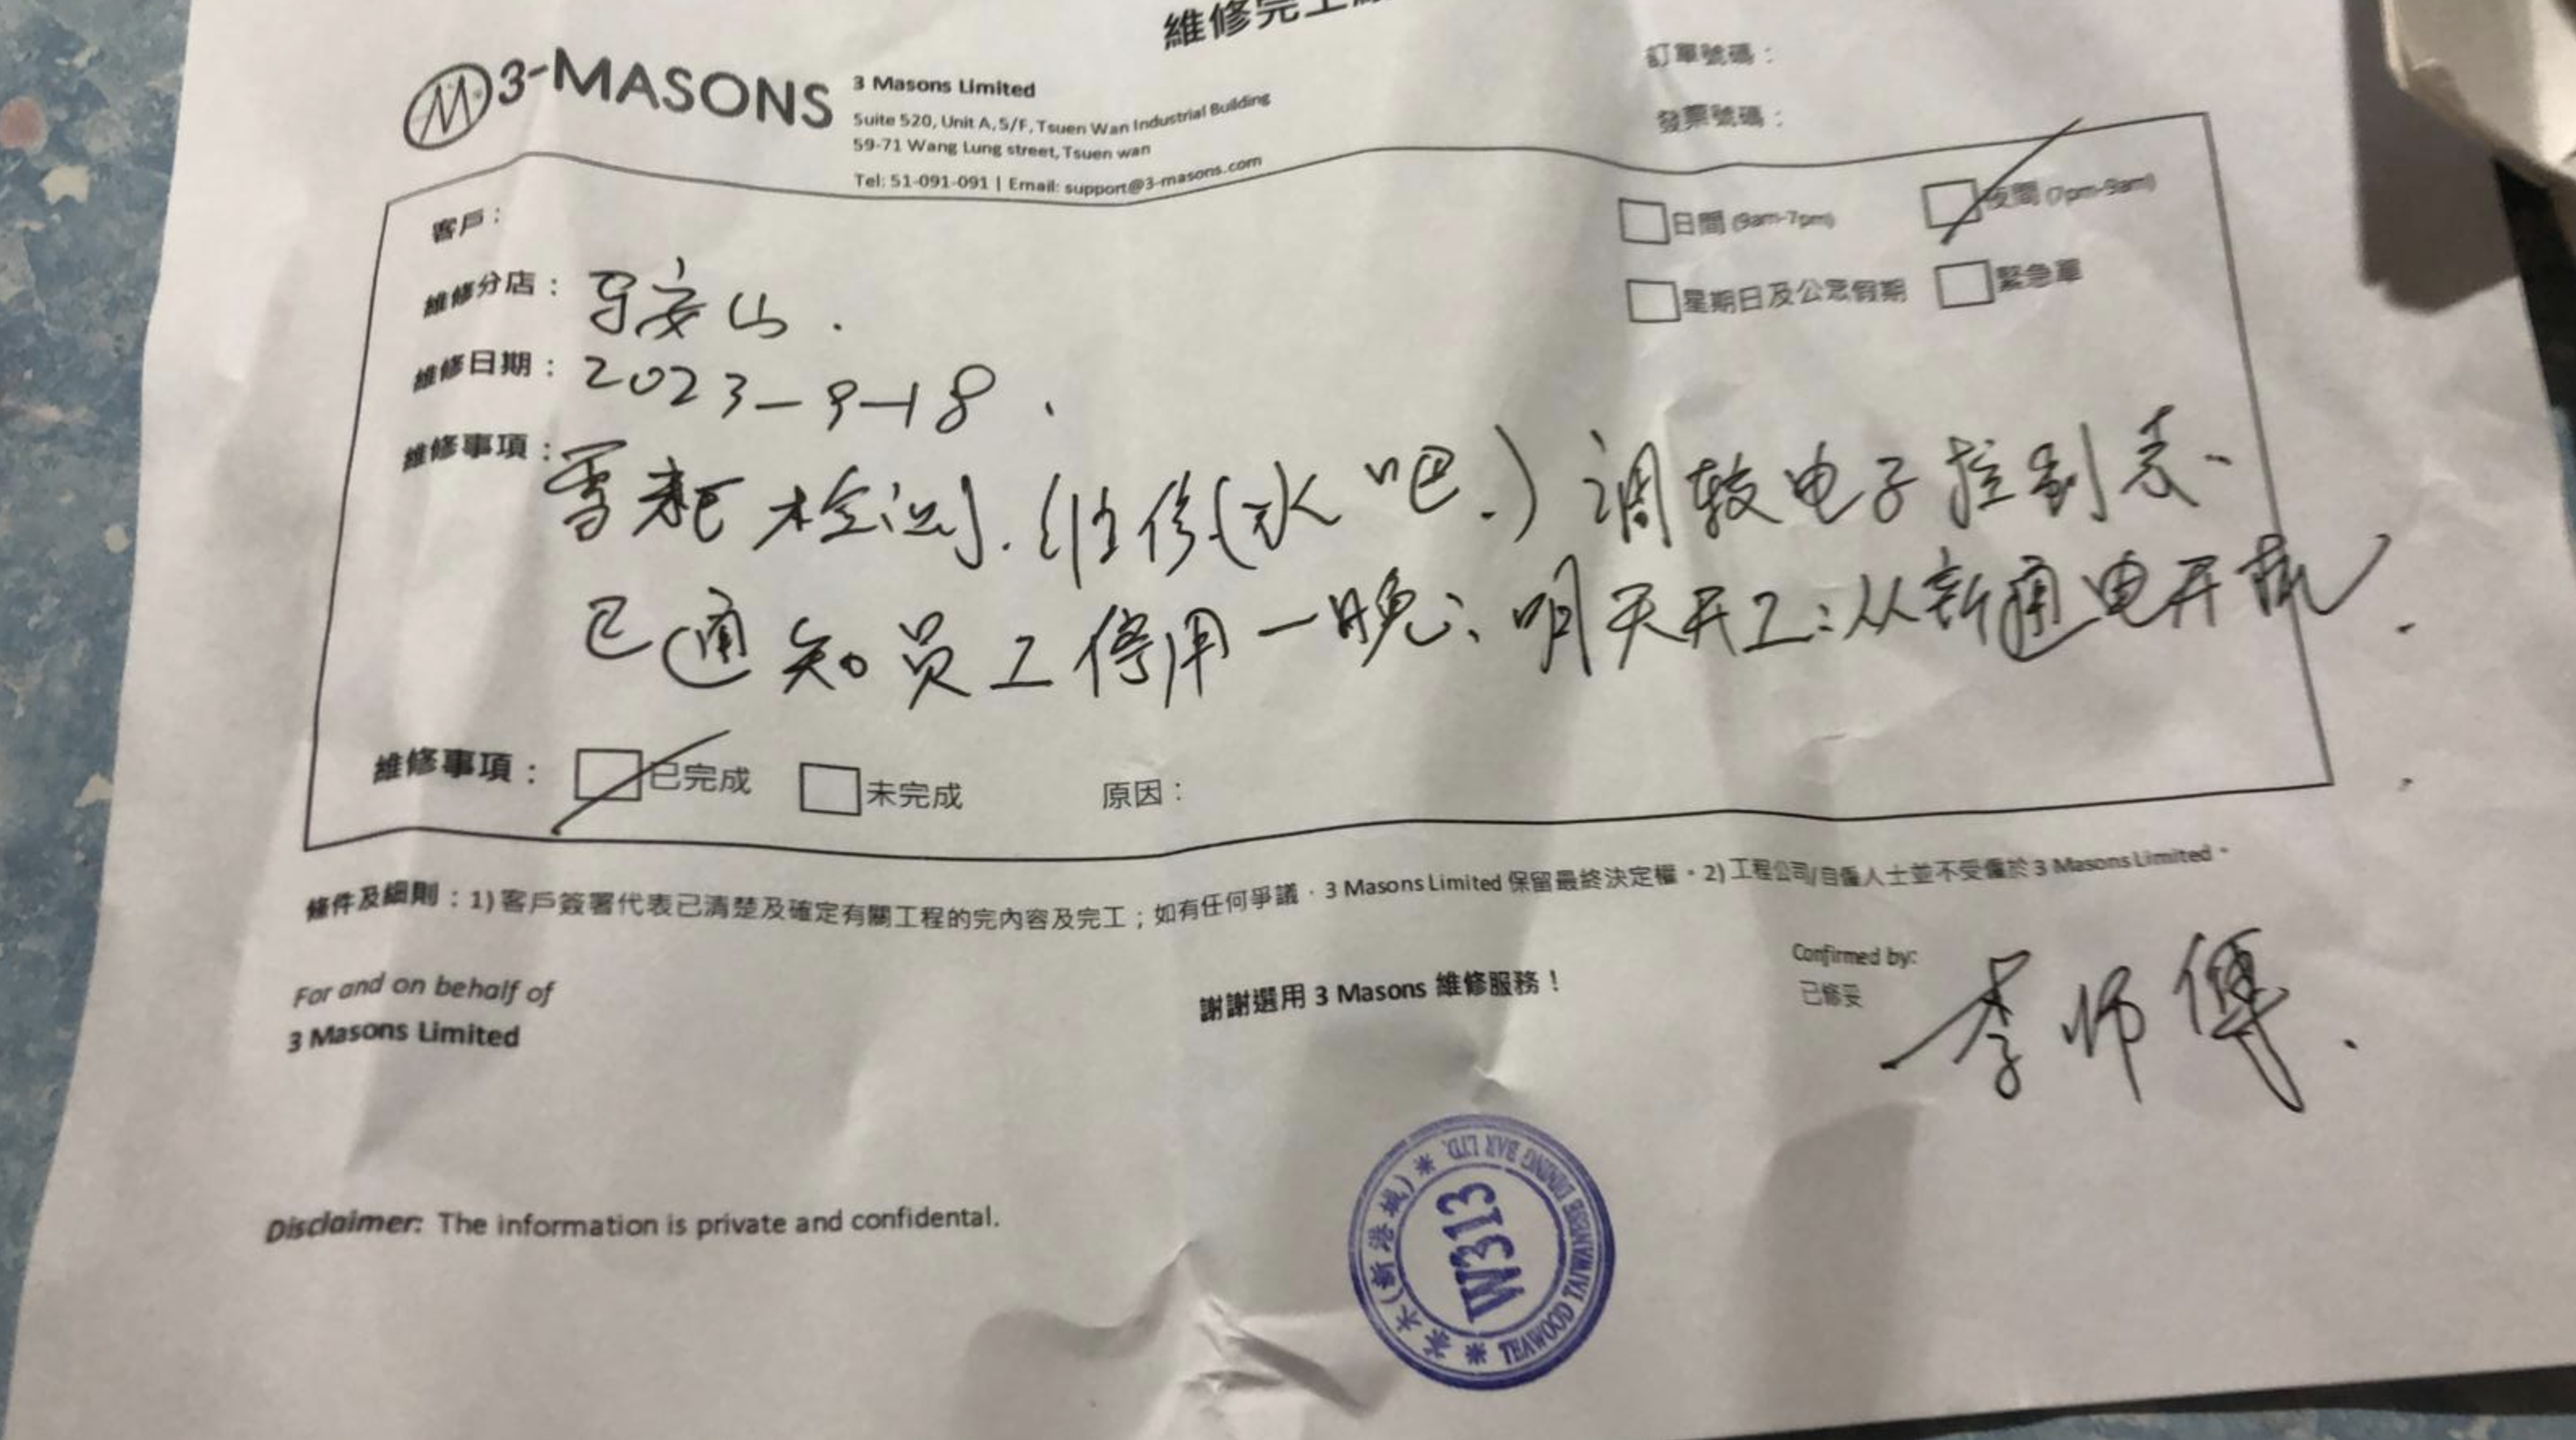 維修完工
3-MASONS
3 Masons Limited
Suite 520, Unit A, 5/F, Tsuen Wan Industrial Building
59-71 Wang Lung street, Tsuen wan
Tel: 51-091-091 | Email: support@3-masons.com
訂單號碼：
發票號碼：
客戶：
日間 (9am-7pm)
夜間 (7pm-9am)
維修分店：马安山.
星期日及公眾假期
緊急單
維修日期：2023-9-18.
維修事項：雪耗检测.维修(水吧.)调较电子控制表.
已通知员工停用一晚；明天开工：从新通电开机.
維修事項：
已完成
未完成
原因：
條件及細則：1) 客戶簽署代表已清楚及確定有關工程的完內容及完工；如有任何爭議，3 Masons Limited 保留最終決定權。2) 工程公司/自僱人士並不受僱於 3 Masons Limited。
For and on behalf of
3 Masons Limited
謝謝選用 3 Masons 維修服務！
Confirmed by:
已修妥
李师傅.
Disclaimer: The information is private and confidental.
TEAWOOD TAIWANESE DINING BAR LTD.
茶木(新港城)
W313